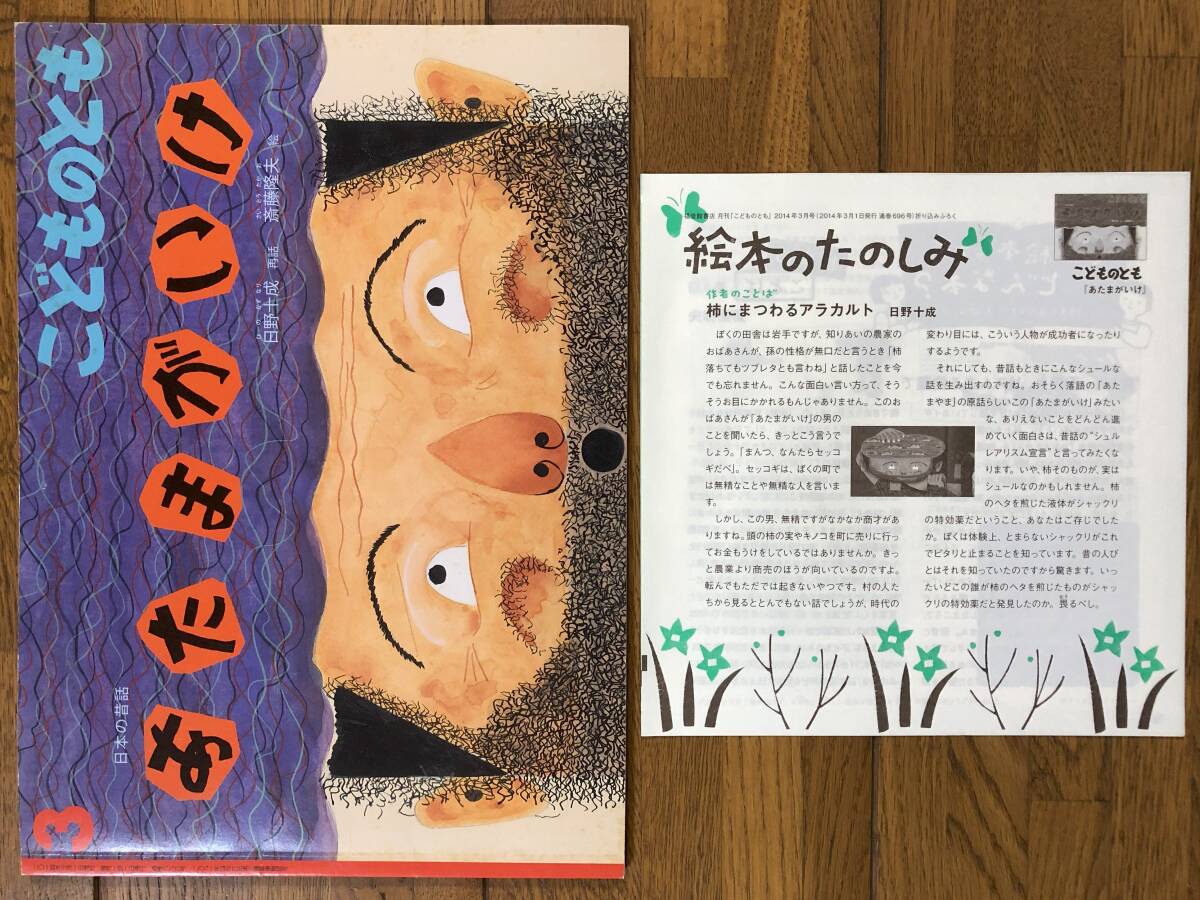 こどものとも
あたまがいけ
日本の昔話
ひのかずなり
日野十成 再話
さいとうたかお
斎藤隆夫 絵
3
福音館書店 月刊「こどものとも」 2014年3月号(2014年3月1日発行 通巻696号)折り込みふろく
絵本のたのしみ
こどものとも
『あたまがいけ』
作者のことば
柿にまつわるアラカルト 日野十成
ぼくの田舎は岩手ですが、知りあいの農家の
おばあさんが、孫の性格が無口だと言うとき「柿
落ちてもツブレタとも言わね」と話したことを今
でも忘れません。こんな面白い言い方って、そう
そうお目にかかれるもんじゃありません。このお
ばあさんが「あたまがいけ」の男の
ことを聞いたら、きっとこう言うで
しょう。「まんつ、なんたらセッコ
ギだべ」。セッコギは、ぼくの町で
は無精なことや無精な人を言いま
す。
しかし、この男、無精ですがなかなか商才があ
りますね。頭の柿の実やキノコを町に売りに行っ
てお金もうけをしているではありませんか。きっ
と農業より商売のほうが向いているのですよ。
転んでもただでは起きないやつです。村の人た
ちから見るととんでもない話でしょうが、時代の
変わり目には、こういう人物が成功者になったり
するようです。
それにしても、昔話もときにこんなシュールな
話を生み出すのですね。おそらく落語の「あた
まやま」の原話らしいこの「あたまがいけ」みたい
な、ありえないことをどんどん進
めていく面白さは、昔話の“シュル
レアリスム宣言”と言ってみたくな
ります。いや、柿そのものが、実は
シュールなのかもしれません。柿
のヘタを煎じた液体がシャックリ
の特効薬だということ、あなたはご存じでした
か。ぼくは体験上、とまらないシャックリがこれ
でピタリと止まることを知っています。昔の人び
とはそれを知っていたのですから驚きます。いっ
たいどこの誰が柿のヘタを煎じたものがシャッ
クリの特効薬だと発見したのか。畏るべし。